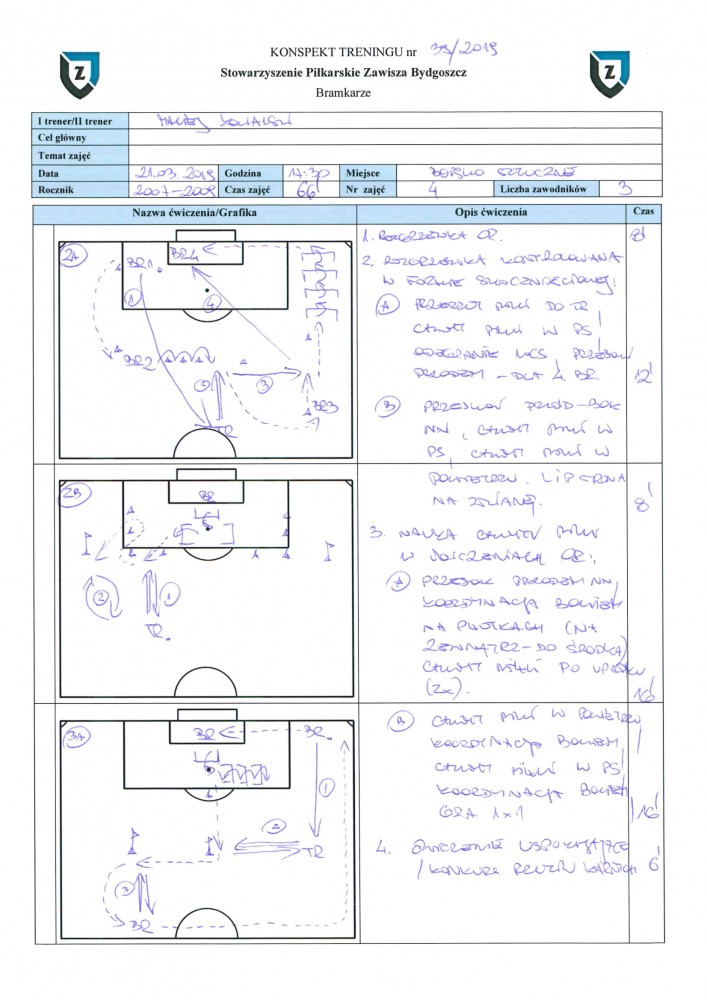 KONSPEKT TRENINGU nr 39/2019
Stowarzyszenie Piłkarskie Zawisza Bydgoszcz
Bramkarze
I trener/II trener MACIEJ
Cel główny
Temat zajęć
Data 21.03.2019 Godzina 17:30 Miejsce BOISKO SZTUCZNE
Rocznik 2007-2009 Czas zajęć 66' Nr zajęć 4 Liczba zawodników 3
Nazwa ćwiczenia/Grafika Opis ćwiczenia Czas
2A
BR1
BR4
1
4
BR2
2
3
BR3
TR
1. ROZGRZEWKA OR. 8'
2. ROZGRZEWKA KONTROLOWANA
W FORMIE
A PRZERZUT PIŁKI DO TR
CHWYT PIŁKI W PS
ODEGRANIE PRZEBIEG
PRZODEM - DLA 4 BR 12'
B PRZESKOK PRZÓD-BOK
NN, CHWYT PIŁKI W
PS, CHWYT PIŁKI W
POWIETRZU.
NA ZMIANĘ. 8'
2B
BR
2
1
TR
3. NAUKA CHWYTU PIŁKI
W ĆWICZENIACH OR:
A PRZESKOK PRZODEM NN,
KOORDYNACJA BOKIEM
NA PŁOTKACH (NA
ZEWNĄTRZ - DO ŚRODKA)
CHWYT PIŁKI PO UPADKU
(2x). 16'
3A
BR
BR
1
2
TR
3
BR
B CHWYT PIŁKI W POWIETRZU
KOORDYNACJA BOKIEM,
CHWYT PIŁKI W PS
KOORDYNACJA BOKIEM
GRA 1x1 16'
4. ĆWICZENIE USPOKAJAJĄCE
/ KONKURS RZUTÓW KARNYCH 6'